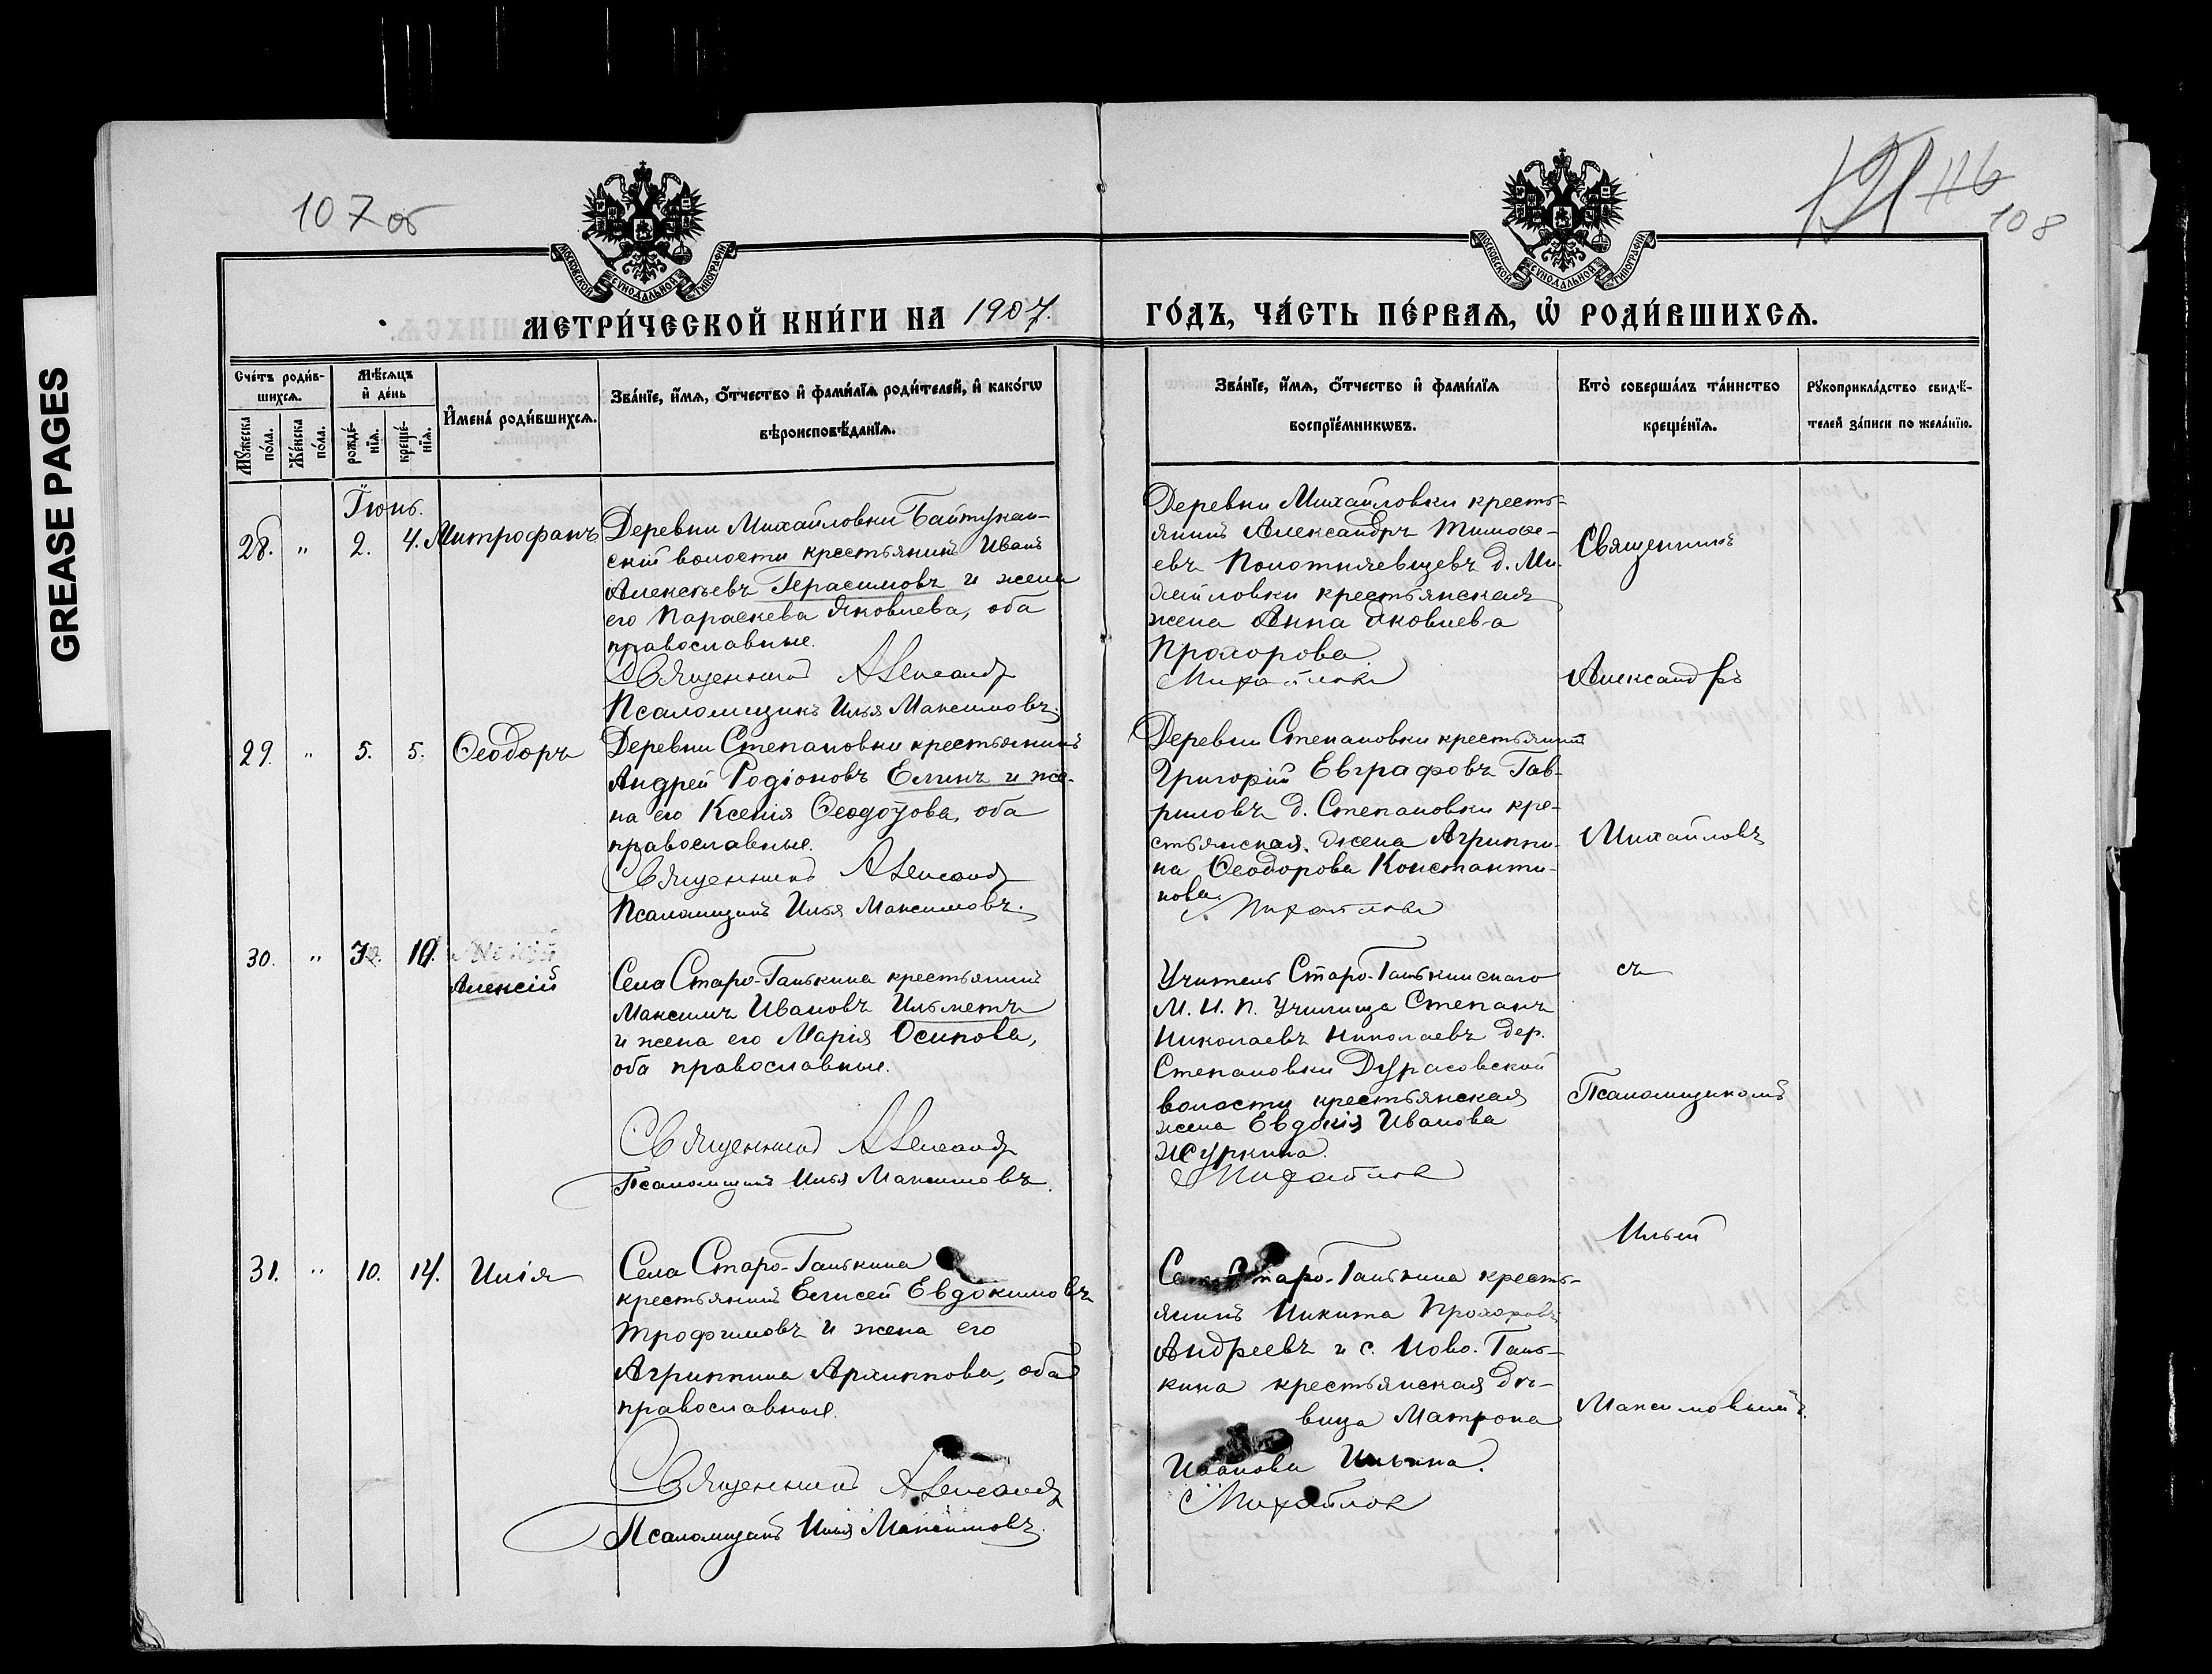 GREASE PAGES
107 об
121 116
108
МОСКОВСКОЙ СѴНОДАЛЬНОЙ ТИПОГРАФІИ
МОСКОВСКОЙ СѴНОДАЛЬНОЙ ТИПОГРАФІИ
МЕТРИ́ЧЕСКОЙ КНИ́ГИ НА 1907.
ГО́ДЪ, ЧА́СТЬ ПЕ́РВАѦ, Ѡ҆ РОДИ́ВШИХСѦ.
Сче́тъ роди́в-
шихсѧ.
Мꙋ́жеска по́ла.
Же́нска по́ла.
Мѣ́сѧцъ
и҆ де́нь
рожде́-
нїѧ.
креще́-
нїѧ.
И҆мена̀ роди́вшихсѧ.
Зва́нїе, и҆́мѧ, ѻ҆́тчество и҆ фами́лїѧ роди́телей, и҆ како́гѡ
вѣроисповѣ́данїѧ.
Зва́нїе, и҆́мѧ, ѻ҆́тчество и҆ фами́лїѧ
воспрїе́мникѡвъ.
Кто̀ соверша́лъ та́инство
креще́нїѧ.
Рꙋкоприкла́дство свидѣ́-
телей за́писи по жела́нїю.
Іюнь.
28. " 2. 4. Митрофанъ
Деревни Михайловки Байтукан-
ской волости крестьянинъ Иванъ
Алексѣевъ Герасимовъ и жена
его Параскева Яковлева, оба
православные.
Священникъ Александръ
Псаломщикъ Илья Максимовъ.
Деревни Михайловки кресть-
янинъ Александръ Тимоѳе-
евъ Полотнянщевъ д. Ми-
хайловки крестьянская
жена Анна Яковлева
Прохорова.
Михайловъ
Священникъ
Александръ
29. " 5. 5. Ѳеодоръ
Деревни Степановки крестьянинъ
Андрей Родіоновъ Елинъ и же-
на его Ксенія Ѳедотова, оба
православные.
Священникъ Александръ
Псаломщикъ Илья Максимовъ.
Деревни Степановки крестьянинъ
Григорій Евграфовъ Гав-
риловъ д. Степановки кре-
стьянская жена Агриппи-
на Ѳеодорова Константи-
нова.
Михайловъ
Михайловъ
30. " 10.
Алексій
Села Старо-Ганькина крестьянинъ
Максимъ Ивановъ Ильметъ
и жена его Марія Осипова,
оба православные.
Священникъ Александръ
Псаломщикъ Илья Максимовъ.
Учитель Старо-Ганькинскаго
М. Н. П. Училища Степанъ
Николаевъ Николаевъ дер.
Степановки Дурасовской
волости крестьянская
жена Евдокія Иванова
Журкина.
Михайловъ
съ
Псаломщикомъ
31. " 10. 14. Илія
Села Старо-Ганькина
крестьянинъ Елисей Евдокимовъ
Трофимовъ и жена его
Агриппина Архиппова, оба
православные.
Священникъ Александръ
Псаломщикъ Илья Максимовъ.
Села Старо-Ганькина кресть-
янинъ Никита Прохоровъ
Андреевъ и с. Ново-Гань-
кина крестьянская дѣ-
вица Матрона
Иванова Ильина.
Михайловъ
Ильей
Максимовымъ.